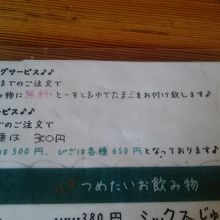 グサービス♪♪
までのご注文で
み物に無料でとーすとかゆでたまごをお付け致します♪
ービス♪♪
のご注文で
種は 300円
は500円、ぴざは各種650円となっております♪
つめたいお飲み物
380円 ミックスじゅ